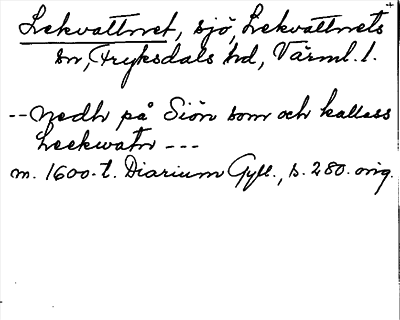 Lekvattnet, sjö, Lekvattnets
sn, Fryksdals hd, Värml. l.
-- Nedh på Siön som och kallass
Leekwatn ---
m. 1600-t. Diarium Gyll., s. 280. orig.